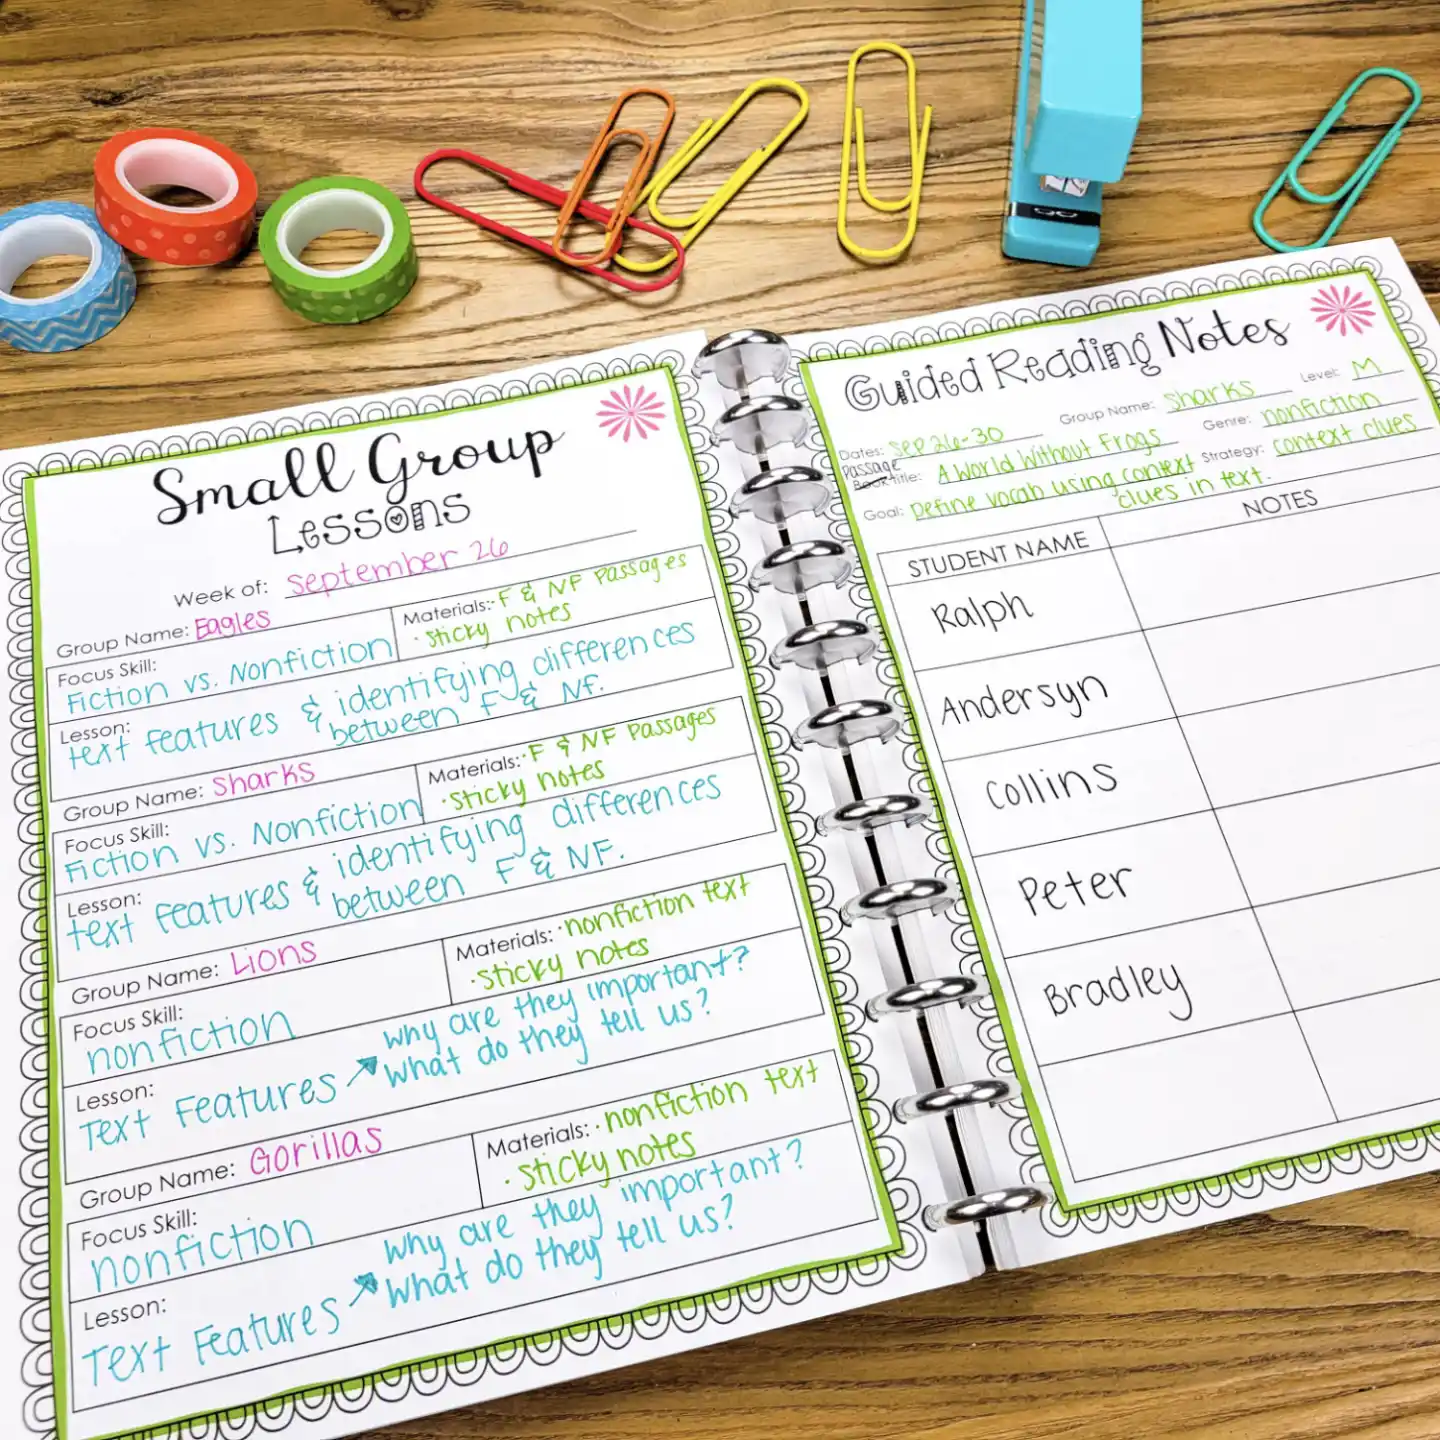 Small Group
Lessons
Week of: September 26
Group Name: Eagles
Materials: · F & NF Passages
· sticky notes
Focus Skill:
Fiction vs. Nonfiction
Lesson:
text features & identifying differences
between F & NF.
Group Name: Sharks
Materials: · F & NF Passages
· sticky notes
Focus Skill:
Fiction vs. Nonfiction
Lesson:
text features & identifying differences
between F & NF.
Group Name: Lions
Materials: · nonfiction text
· sticky notes
Focus Skill:
nonfiction
Lesson:
Text Features ↗ why are they important?
what do they tell us?
Group Name: Gorillas
Materials: · nonfiction text
· sticky notes
Focus Skill:
nonfiction
Lesson:
Text Features ↗ why are they important?
what do they tell us?
Guided Reading Notes
Dates: Sep 26-30 Group Name: Sharks Level: M
Passage
Book title: A World Without Frogs Genre: nonfiction
Goal: Define vocab using context Strategy: context clues
clues in text.
STUDENT NAME NOTES
Ralph
Andersyn
Collins
Peter
Bradley